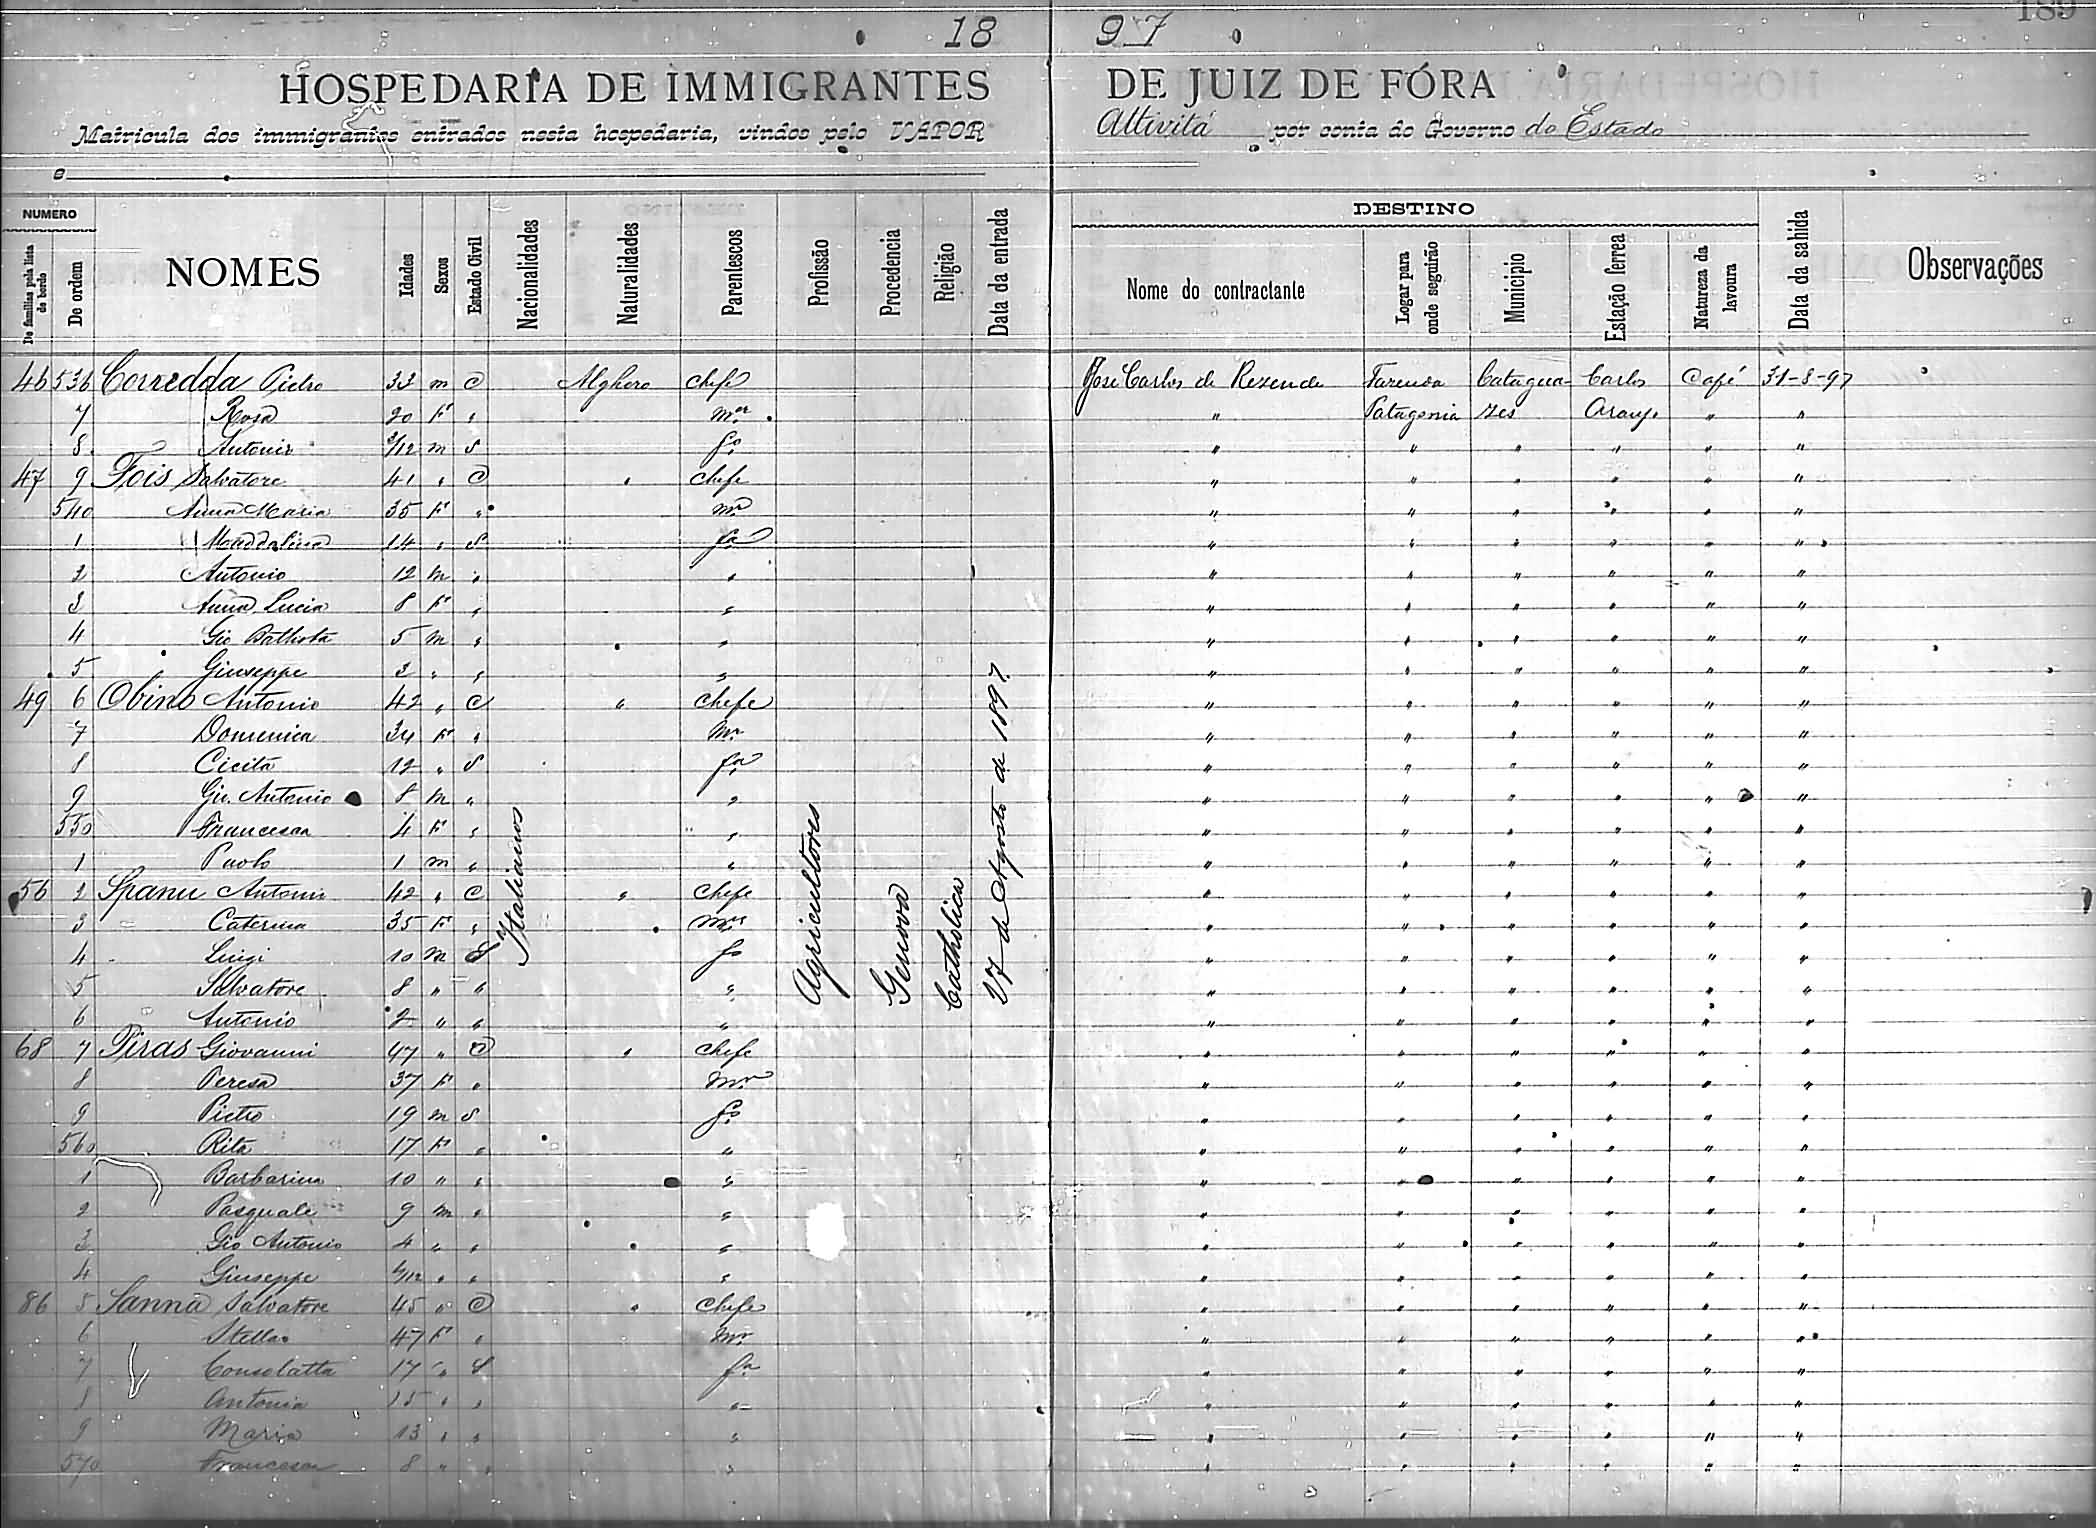 189
18 97
HOSPEDARIA DE IMMIGRANTES DE JUIZ DE FÓRA
Matricula dos immigrantes entrados nesta hospedaria, vindos pelo VAPOR Attivitá por conta do Governo do Estado
e
NUMERO DESTINO
De familias pela lista de bordo De ordem NOMES Idades Sexos Estado Civil Nacionalidades Naturalidades Parentescos Profissão Procedencia Religião Data da entrada Nome do contractante Logar para onde seguirão Municipio Estação ferrea Natureza da lavoura Data da sahida Observações
46 536 Corredda Pietro 33 m C Alghero Chefe José Carlos de Rezende Fazenda Catagua- Carlos Café 31-8-97
7 Rosa 20 F " mer " Patagonia zes Araujo " "
8 Antonio /12 m S fo " " " " " "
47 9 Fois Salvatore 41 " C " Chefe " " " " " "
540 Anna Maria 35 F " mer " " " " " "
1 Maddalena 14 " S fa " " " " " "
2 Antonio 12 m " " " " " " " "
3 Anna Lucia 8 F " " " " " " " "
4 Gio Battista 5 m " " " " " " " "
5 Giuseppe 2 " " " " " " " " "
49 6 Obino Antonio 42 " C " Chefe " " " " " "
7 Domenica 34 F " mr " " " " " "
8 Cicita 12 " S fa " " " " " "
9 Gio. Antonio 8 m " " " " " " " "
550 Francesca 4 F " " " " " " " "
1 Paolo 1 m " " " " " " " "
56 2 Spanu Antonio 42 " C " Chefe " " " " " "
3 Caterina 35 F " mer " " " " " "
4 Luigi 10 m S fo " " " " " "
5 Salvatore 8 " " " " " " " " "
6 Antonio 2 " " " " " " " " "
68 7 Piras Giovanni 47 " C " Chefe " " " " " "
8 Teresa 37 F " mer " " " " " "
9 Pietro 19 m S fo " " " " " "
560 Rita 17 F " " " " " " " "
1 Barbarina 10 " " " " " " " " "
2 Pasquale 9 m " " " " " " " "
3 Gio Antonio 4 " " " " " " " " "
4 Giuseppe /12 " " " " " " " " "
86 5 Sanna Salvatore 45 " C " Chefe " " " " " "
6 Stella 47 F " mr " " " " " "
7 Consolatta 17 " S fa " " " " " "
8 Antonia 15 " " " " " " " " "
9 Maria 13 " " " " " " " " "
570 Francesca 8 " " " " " " " " "
Italianos
Agricultores
Genova
Catholica
27 de Agosto de 1897